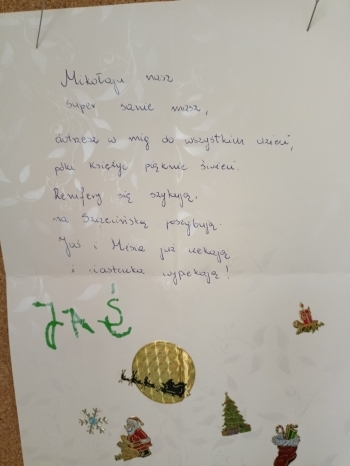 Mikołaju nasz
super sanie masz,
dotrzesz w mig do wszystkich dzieci,
póki księżyc pięknie świeci.
Renifery się szykują,
na Szczecińską poszybują.
Jaś i Mexa już czekają
i ciasteczka wypiekają!
JAŚ